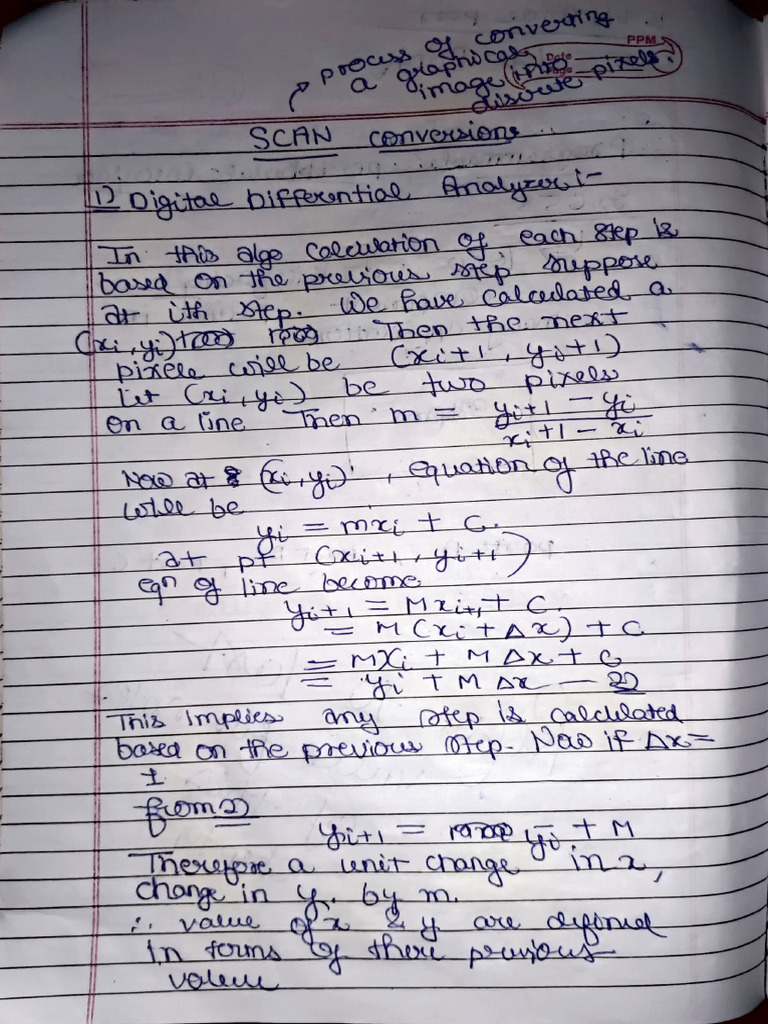 PPM
Date
Page
process of converting
a graphical
image into
discrete pixels.
SCAN conversions
1) Digital Differential Analyzer :-
In this algo calculation of each step is
based on the previous step suppose
at ith step. We have calculated a
(xi, yi) Then the next
pixele will be (xi+1, yi+1)
Let (xi, yi) be two pixels
on a line Then m = yi+1 - yi / xi+1 - xi
Now at (xi, yi), equation of the line
will be
yi = mxi + C.
at pt (xi+1, yi+1)
eqn of line become
yi+1 = Mxi+1 + C.
= M(xi + Δx) + C
= MXi + MΔx + C
= yi + MΔx — 2)
This implies any step is calculated
based on the previous step. Now if Δx =
1
from 2)
yi+1 = yi + M
Therefore a unit change in x,
change in y. by m.
∴ value of x & y are defined
in terms of there previous
value